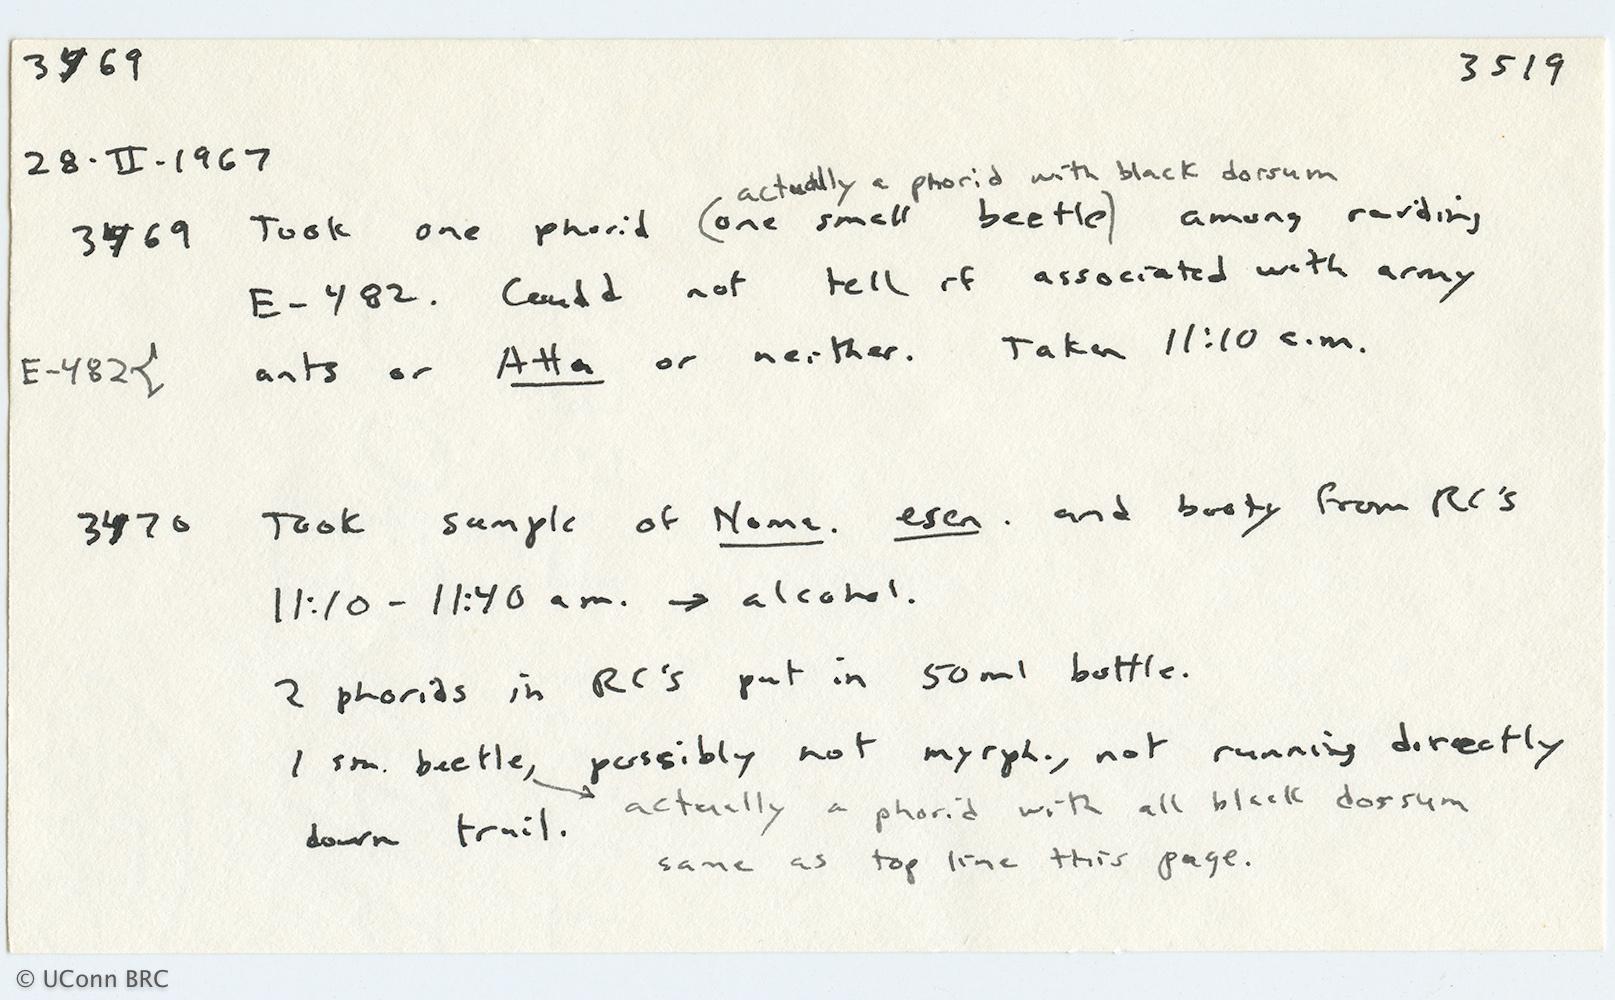 3469 3519
28·II-1967
actually a phorid with black dorsum
3469 Took one phorid (one small beetle) among raiding
E-482. Could not tell if associated with army
E-482{ ants or Atta or neither. Taken 11:10 a.m.
3470 Took sample of Noma. esen. and booty from RC's
11:10 - 11:40 a.m. → alcohol.
2 phorids in RC's put in 50 ml bottle.
1 sm. beetle, possibly not myrph., not running directly
actually a phorid with all black dorsum
down trail.
same as top line this page.
© UConn BRC